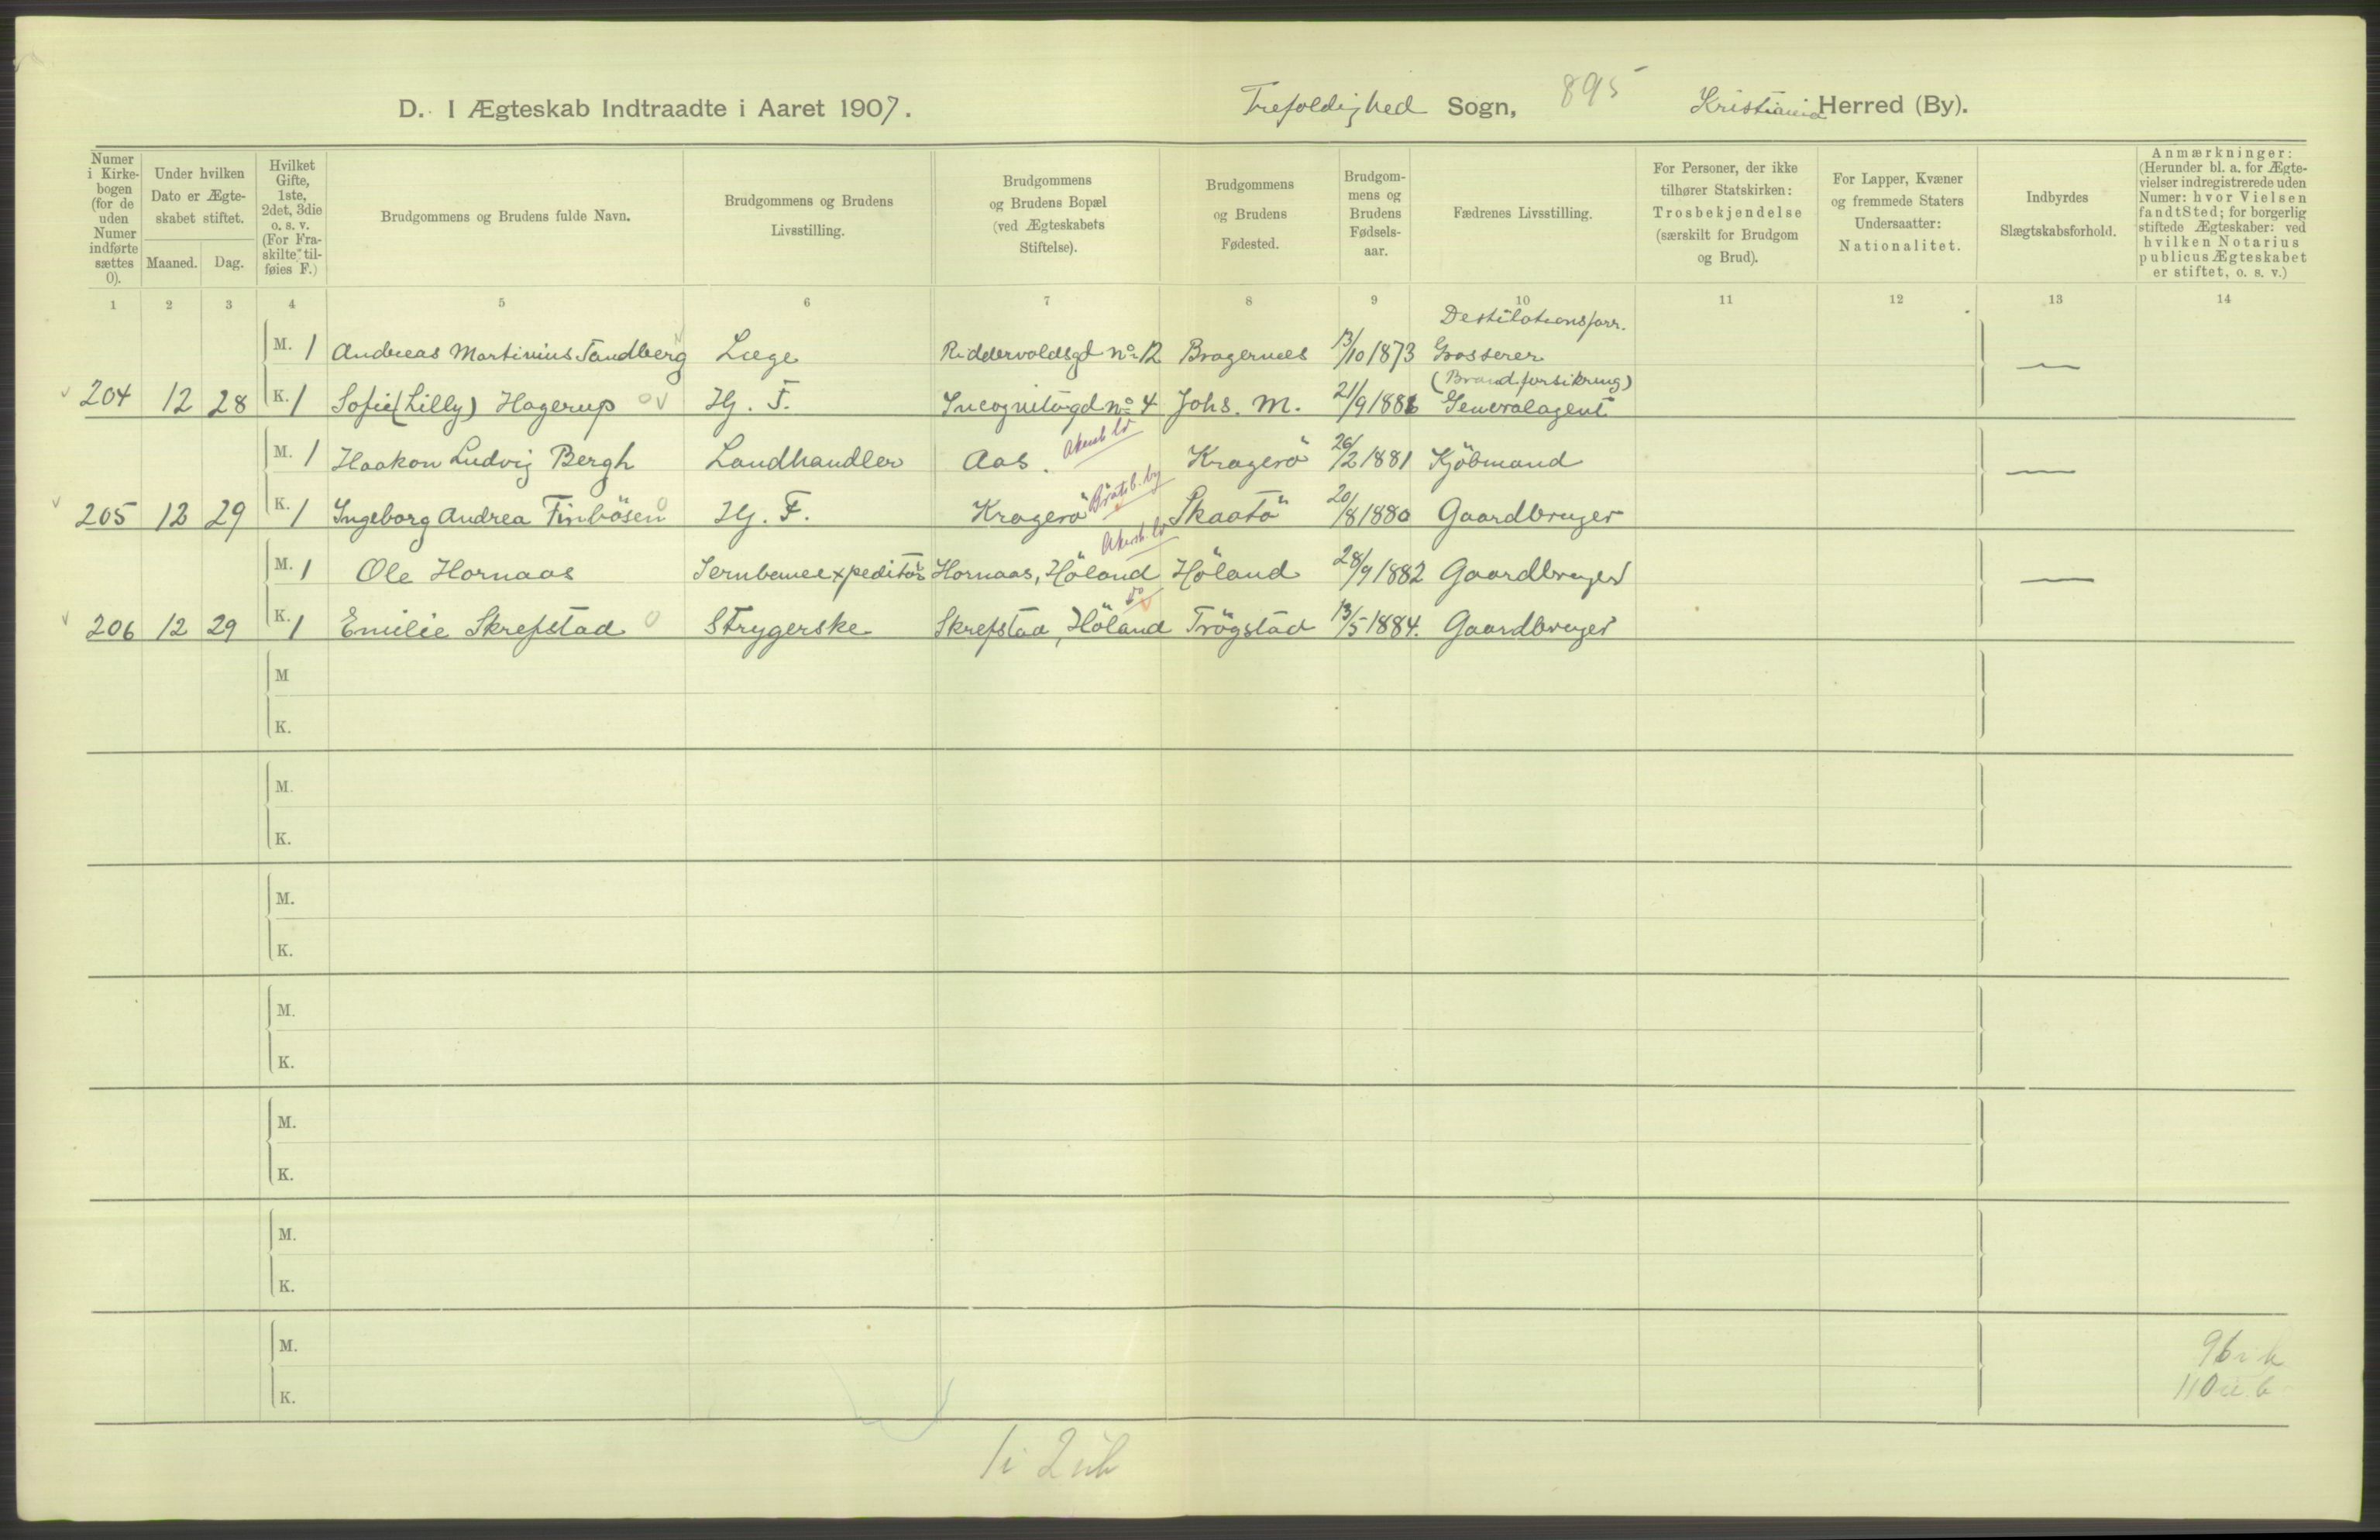 D. I Ægteskab Indtraadte i Aaret 1907. Trefoldighed Sogn, 895 Kristiania Herred (By).
Numer i Kirkebogen (for de uden Numer indførte sættes 0).
Under hvilken Dato er Ægteskabet stiftet.
Maaned. Dag.
Hvilket Gifte, 1ste, 2det, 3die o. s. v. (For Fraskilte tilføies F.)
Brudgommens og Brudens fulde Navn.
Brudgommens og Brudens Livsstilling.
Brudgommens og Brudens Bopæl (ved Ægteskabets Stiftelse).
Brudgommens og Brudens Fødested.
Brudgommens og Brudens Fødselsaar.
Fædrenes Livsstilling.
For Personer, der ikke tilhører Statskirken: Trosbekjendelse (særskilt for Brudgom og Brud).
For Lapper, Kvæner og fremmede Staters Undersaatter: Nationalitet.
Indbyrdes Slægtskabsforhold.
Anmærkninger: (Herunder bl. a. for Ægtevielser indregistrerede uden Numer: hvor Vielsen fandt Sted; for borgerlig stiftede Ægteskaber: ved hvilken Notarius publicus Ægteskabet er stiftet, o. s. v.)
1 2 3 4 5 6 7 8 9 10 11 12 13 14
Destilationsforr.
M. 1 Andreas Martinius Sandberg Læge Riddervoldsgd No 12 Bragernes 13/10 1873 Grosserer
(Brandforsikring)
204 12 28 K. 1 Sofie (Lilly) Hagerup Hj. F. Incognitogd No 4 Johs. M. 21/9 1881 Generalagent
M. 1 Haakon Ludvig Bergh Landhandler Aas. Akersh. ld Kragerö 26/2 1881 Kjöbmand
205 12 29 K. 1 Ingeborg Andrea Finbösen Hj. F. Kragerö Bratsb. by Skaatö 20/8 1880 Gaardbruger
Akersh. ld
M. 1 Ole Hornaas Jernbaneexpeditör Hornaas, Höland Höland 28/9 1882 Gaardbruger
do
206 12 29 K. 1 Emilie Skrefstad Strygerske Skrefstad, Höland Trögstad 13/5 1884. Gaardbruger
M
K.
M.
K.
M.
K.
M.
K.
M.
K.
M.
K.
M.
K.
96 i b
110 u. b
1 i 2 ub